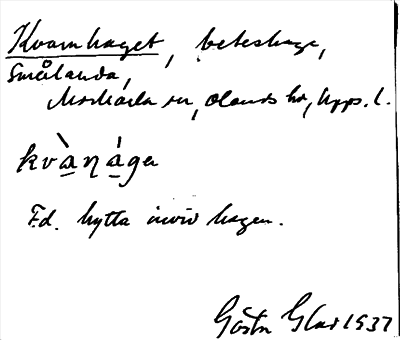 Kvarnhaget, beteshage,
Smålanda,
Morkarla sn, Olands hd, Upps. l.
kvàṇága
F.d. hytta invid hagen.
Gösta Glas 1937